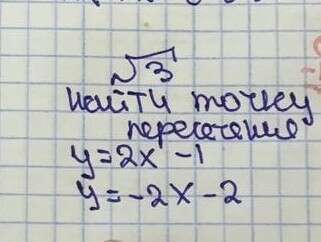 √3
найти точку
пересечения
y=2x -1
y=-2x-2